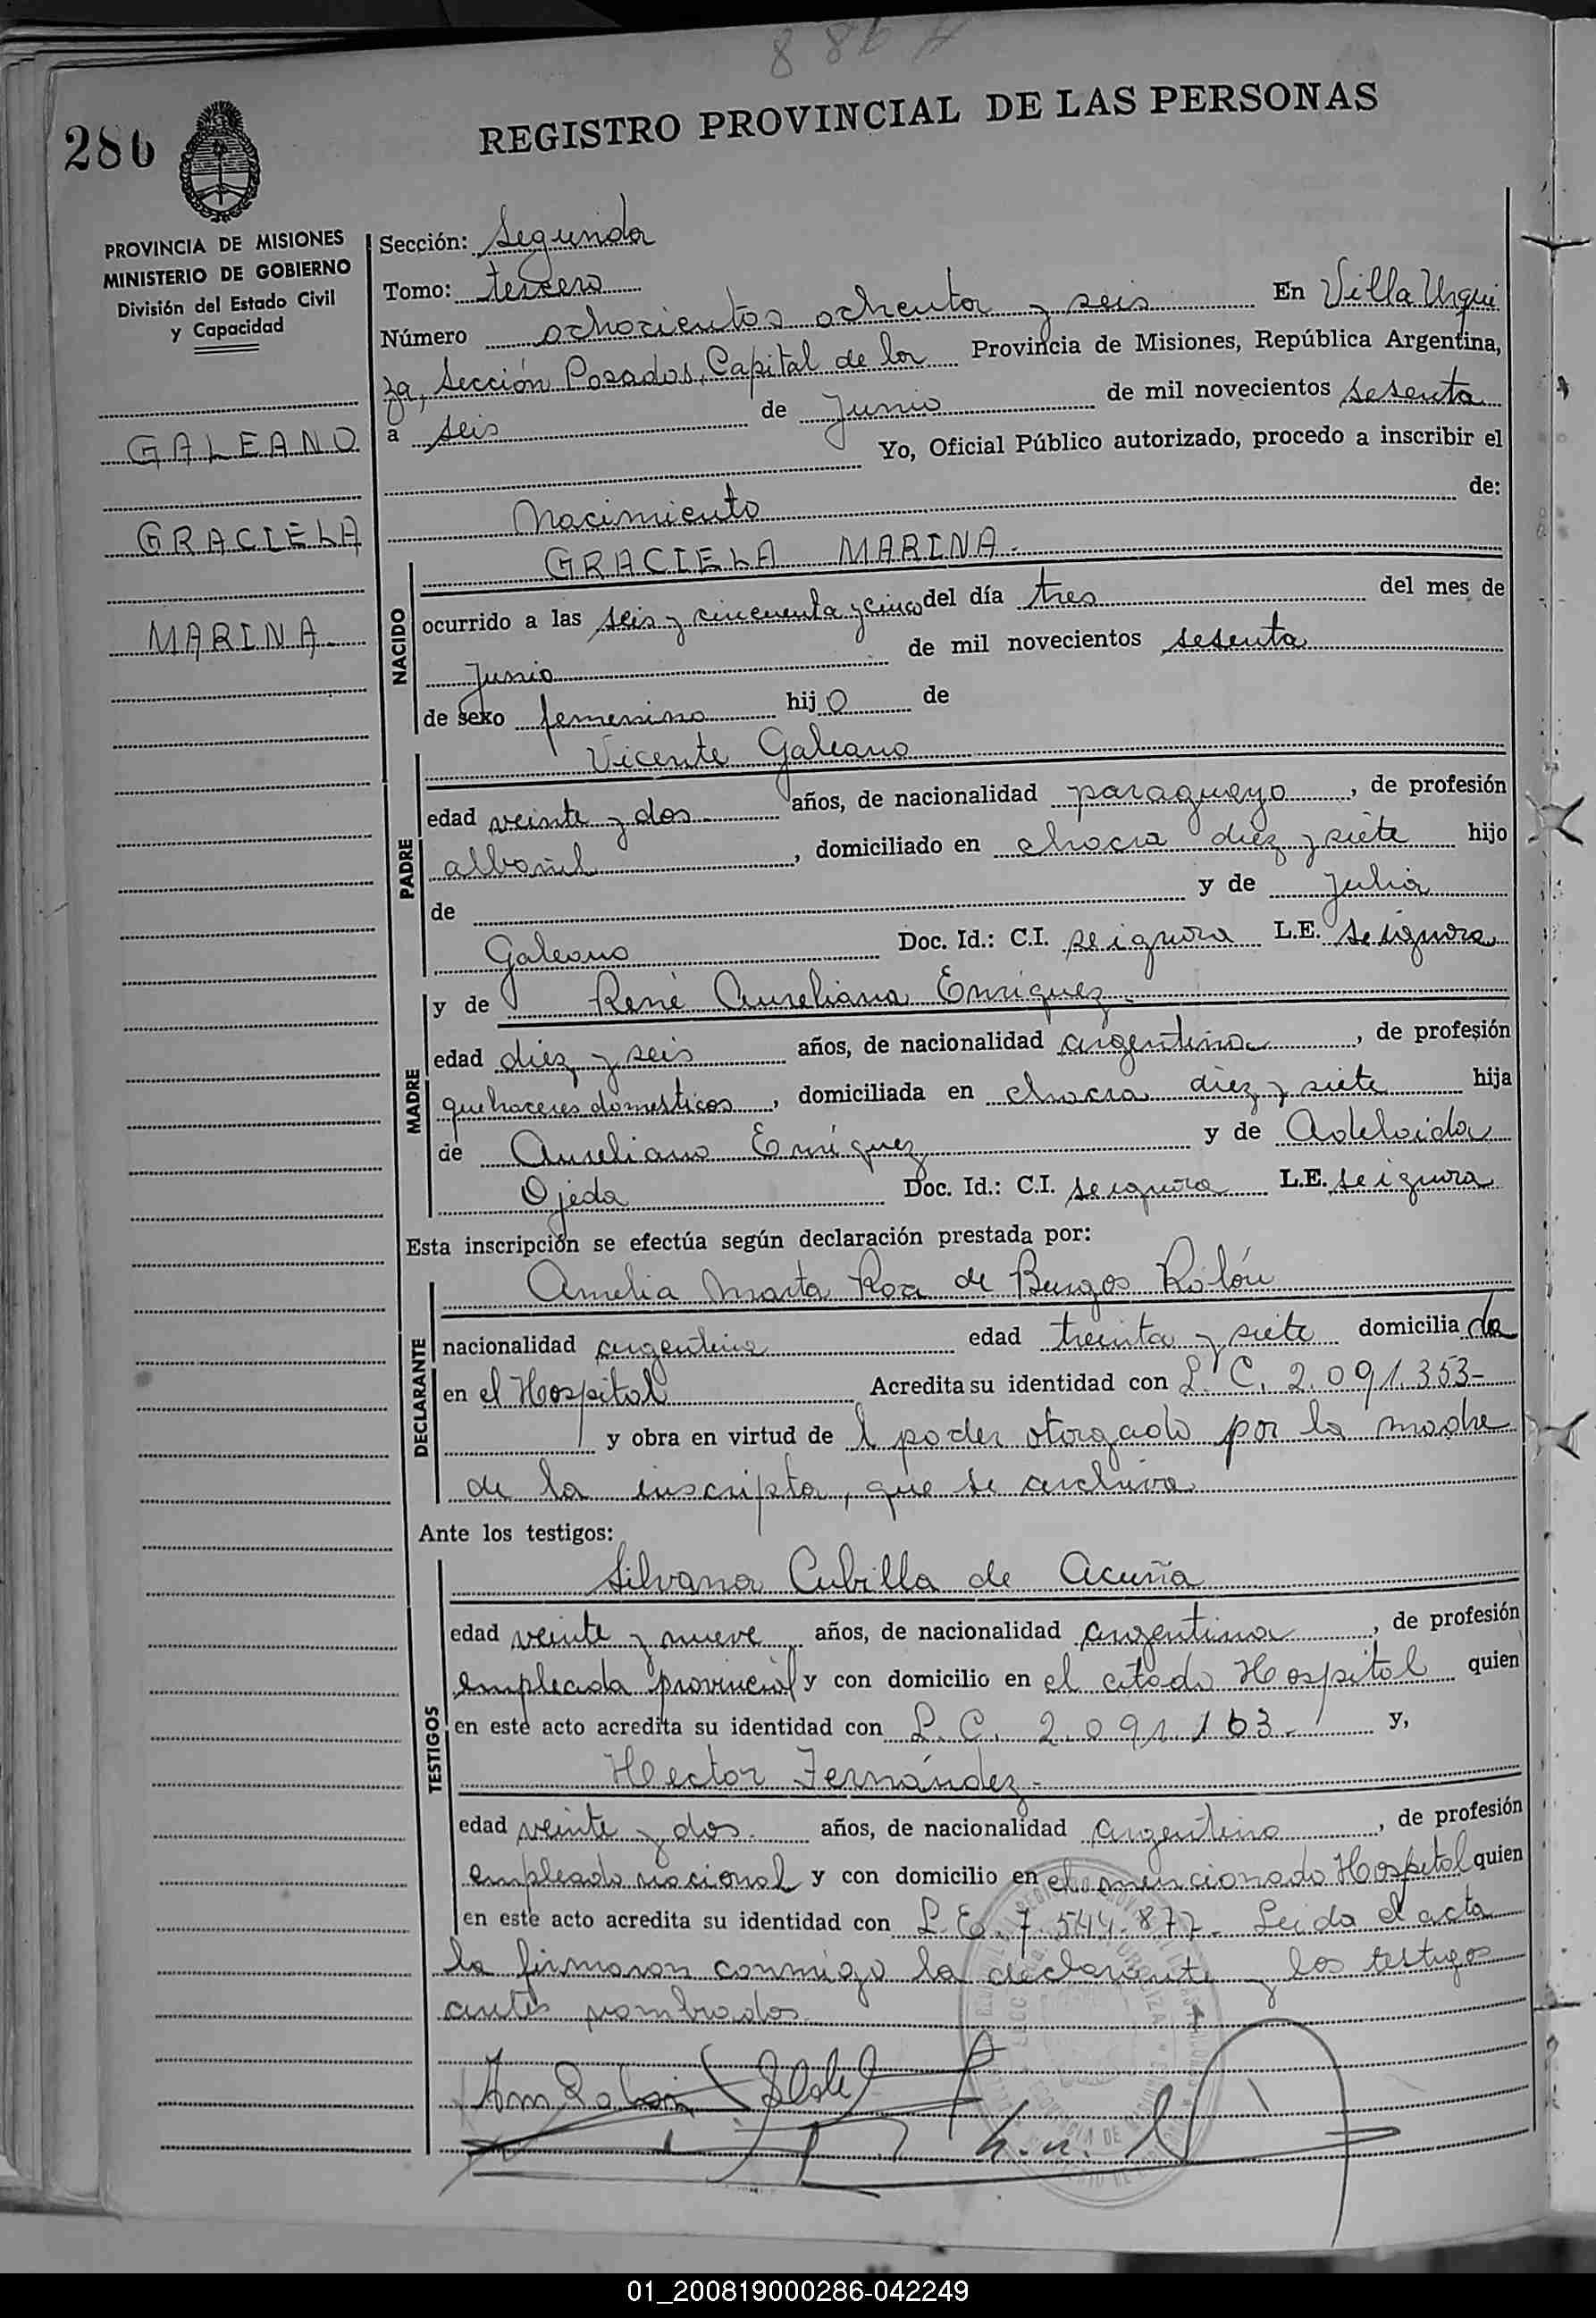 886
REGISTRO PROVINCIAL DE LAS PERSONAS
286
PROVINCIA DE MISIONES
MINISTERIO DE GOBIERNO
División del Estado Civil
y Capacidad
GALEANO
GRACIELA
MARINA.-
Sección: Segunda
Tomo: tercero
Número ochocientos ochenta y seis En Villa Urqui
za, Sección Posadas, Capital de la Provincia de Misiones, República Argentina,
a seis de Junio de mil novecientos sesenta
Yo, Oficial Público autorizado, procedo a inscribir el
Nacimiento de:
GRACIELA MARINA.-
NACIDO
ocurrido a las seis y cincuenta y cinco del día tres del mes de
Junio de mil novecientos sesenta
de sexo femenino hijo de
Vicente Galeano
PADRE
edad veinte y dos.- años, de nacionalidad paraguayo, de profesión
albañil, domiciliado en chacra diez y siete hijo
de y de Julia
Galeano Doc. Id.: C.I. se ignora L.E. se ignora
MADRE
y de René Aureliana Enriquez.-
edad diez y seis años, de nacionalidad argentina, de profesión
quehaceres domesticos, domiciliada en chacra diez y siete hija
de Aureliano Enriquez y de Adelaida
Ojeda Doc. Id.: C.I. se ignora L.E. se ignora
Esta inscripción se efectúa según declaración prestada por:
DECLARANTE
Amelia Marta Roa de Burgos Rolón
nacionalidad argentina edad treinta y siete domiciliada
en el Hospital Acredita su identidad con L. C. 2.091.353-
y obra en virtud del poder otorgado por la madre
de la inscripta, que se archiva
Ante los testigos:
TESTIGOS
Silvana Cubilla de Acuña
edad veinte y nueve años, de nacionalidad argentina, de profesión
empleada provincial y con domicilio en el citado Hospital quien
en este acto acredita su identidad con L. C. 2.091.163.- y,
Hector Fernández.-
edad veinte y dos.- años, de nacionalidad argentino, de profesión
empleado nacional y con domicilio en el mencionado Hospital quien
en este acto acredita su identidad con L. E. 7.544.877- Leida el acta
la firmaron conmigo la declarante y los testigos
antes nombrados.
01_200819000286-042249